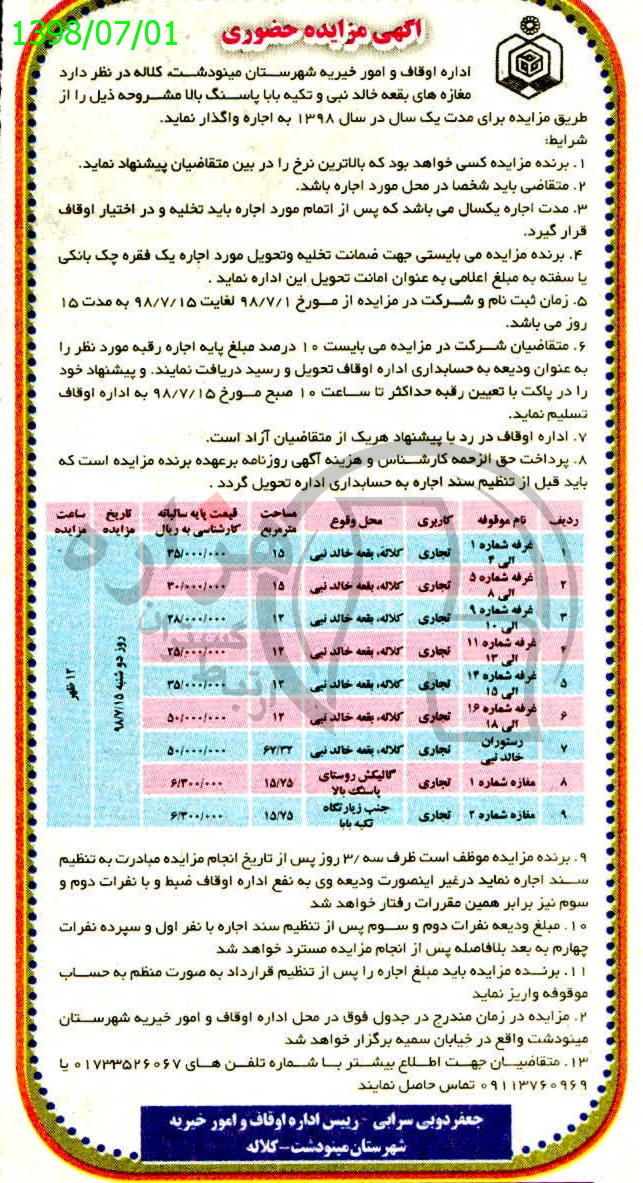 1398/07/01
آگهی مزایده حضوری
اداره اوقاف و امور خیریه شهرستان مینودشت، کلاله در نظر دارد
مغازه های بقعه خالد نبی و تکیه بابا پاسنگ بالا مشروحه ذیل را از
طریق مزایده برای مدت یک سال در سال ۱۳۹۸ به اجاره واگذار نماید.
شرایط:
۱. برنده مزایده کسی خواهد بود که بالاترین نرخ را در بین متقاضیان پیشنهاد نماید.
۲. متقاضی باید شخصا در محل مورد اجاره باشد.
۳. مدت اجاره یکسال می باشد که پس از اتمام مورد اجاره باید تخلیه و در اختیار اوقاف
قرار گیرد.
۴. برنده مزایده می بایستی جهت ضمانت تخلیه وتحویل مورد اجاره یک فقره چک بانکی
یا سفته به مبلغ اعلامی به عنوان امانت تحویل این اداره نماید .
۵. زمان ثبت نام و شرکت در مزایده از مورخ ۹۸/۷/۱ لغایت ۹۸/۷/۱۵ به مدت ۱۵
روز می باشد.
۶. متقاضیان شرکت در مزایده می بایست ۱۰ درصد مبلغ پایه اجاره رقبه مورد نظر را
به عنوان ودیعه به حسابداری اداره اوقاف تحویل و رسید دریافت نمایند. و پیشنهاد خود
را در پاکت با تعیین رقبه حداکثر تا ساعت ۱۰ صبح مورخ ۹۸/۷/۱۵ به اداره اوقاف
تسلیم نماید.
۷. اداره اوقاف در رد یا پیشنهاد هریک از متقاضیان آزاد است.
۸. پرداخت حق الزحمه کارشناس و هزینه آگهی روزنامه برعهده برنده مزایده است که
باید قبل از تنظیم سند اجاره به حسابداری اداره تحویل گردد .
ردیف نام موقوفه کاربری محل وقوع مساحت مترمربع قیمت پایه سالیانه کارشناسی به ریال تاریخ مزایده ساعت مزایده
۱ غرفه شماره ۱ الی ۴ تجاری کلاله، بقعه خالد نبی ۱۵ ۳۵/۰۰۰/۰۰۰
۲ غرفه شماره ۵ الی ۸ تجاری کلاله، بقعه خالد نبی ۱۵ ۳۰/۰۰۰/۰۰۰
۳ غرفه شماره ۹ الی ۱۰ تجاری کلاله، بقعه خالد نبی ۱۲ ۲۸/۰۰۰/۰۰۰
۴ غرفه شماره ۱۱ الی ۱۳ تجاری کلاله، بقعه خالد نبی ۱۲ ۲۵/۰۰۰/۰۰۰
۵ غرفه شماره ۱۴ الی ۱۵ تجاری کلاله، بقعه خالد نبی ۱۲ ۳۵/۰۰۰/۰۰۰
۶ غرفه شماره ۱۶ الی ۱۸ تجاری کلاله، بقعه خالد نبی ۱۲ ۵۰/۰۰۰/۰۰۰
۷ رستوران خالد نبی تجاری کلاله، بقعه خالد نبی ۶۷/۳۲ ۵۰/۰۰۰/۰۰۰
۸ مغازه شماره ۱ تجاری گالیکش روستای پاسنگ بالا ۱۵/۷۵ ۶/۳۰۰/۰۰۰
۹ مغازه شماره ۲ تجاری جنب زیارتگاه تکیه بابا ۱۵/۷۵ ۶/۳۰۰/۰۰۰
روز دو شنبه ۹۸/۷/۱۵
۱۲ ظهر
هزاره
گستران
ارتباط
۹. برنده مزایده موظف است ظرف سه /۳ روز پس از تاریخ انجام مزایده مبادرت به تنظیم
سند اجاره نماید درغیر اینصورت ودیعه وی به نفع اداره اوقاف ضبط و با نفرات دوم و
سوم نیز برابر همین مقررات رفتار خواهد شد
۱۰. مبلغ ودیعه نفرات دوم و سوم پس از تنظیم سند اجاره با نفر اول و سپرده نفرات
چهارم به بعد بلافاصله پس از انجام مزایده مسترد خواهد شد
۱۱. برنده مزایده باید مبلغ اجاره را پس از تنظیم قرارداد به صورت منظم به حساب
موقوفه واریز نماید
۲. مزایده در زمان مندرج در جدول فوق در محل اداره اوقاف و امور خیریه شهرستان
مینودشت واقع در خیابان سمیه برگزار خواهد شد
۱۳. متقاضیان جهت اطلاع بیشتر با شماره تلفن های ۰۱۷۳۳۵۲۶۰۶۷ یا
۰۹۱۱۳۷۶۰۹۶۹ تماس حاصل نمایند
جعفردویی سرابی - رییس اداره اوقاف و امور خیریه
شهرستان مینودشت–کلاله